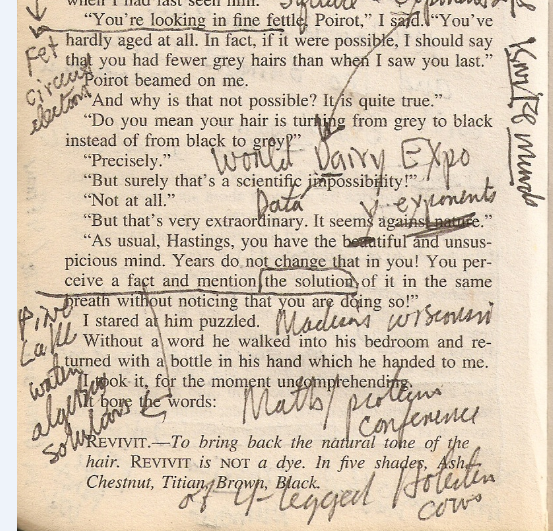 when I had last seen him.
"You're looking in fine fettle, Poirot," I said. "You've
hardly aged at all. In fact, if it were possible, I should say
that you had fewer grey hairs than when I saw you last."
Poirot beamed on me.
"And why is that not possible? It is quite true."
"Do you mean your hair is turning from grey to black
instead of from black to grey?"
"Precisely."
"But surely that's a scientific impossibility!"
"Not at all."
"But that's very extraordinary. It seems against nature."
"As usual, Hastings, you have the beautiful and unsus-
picious mind. Years do not change that in you! You per-
ceive a fact and mention the solution of it in the same
breath without noticing that you are doing so!"
I stared at him puzzled.
Without a word he walked into his bedroom and re-
turned with a bottle in his hand which he handed to me.
I took it, for the moment uncomprehending.
It bore the words:
REVIVIT.—To bring back the natural tone of the
hair. REVIVIT is NOT a dye. In five shades, Ash,
Chestnut, Titian, Brown, Black.
World Dairy Expo
Data
exponents
Wisconsin
Maths/proteins
conference
of 4-legged Holstein
cows
Fet
circuit
electron
Pine
Lake
water
algebra
solutions